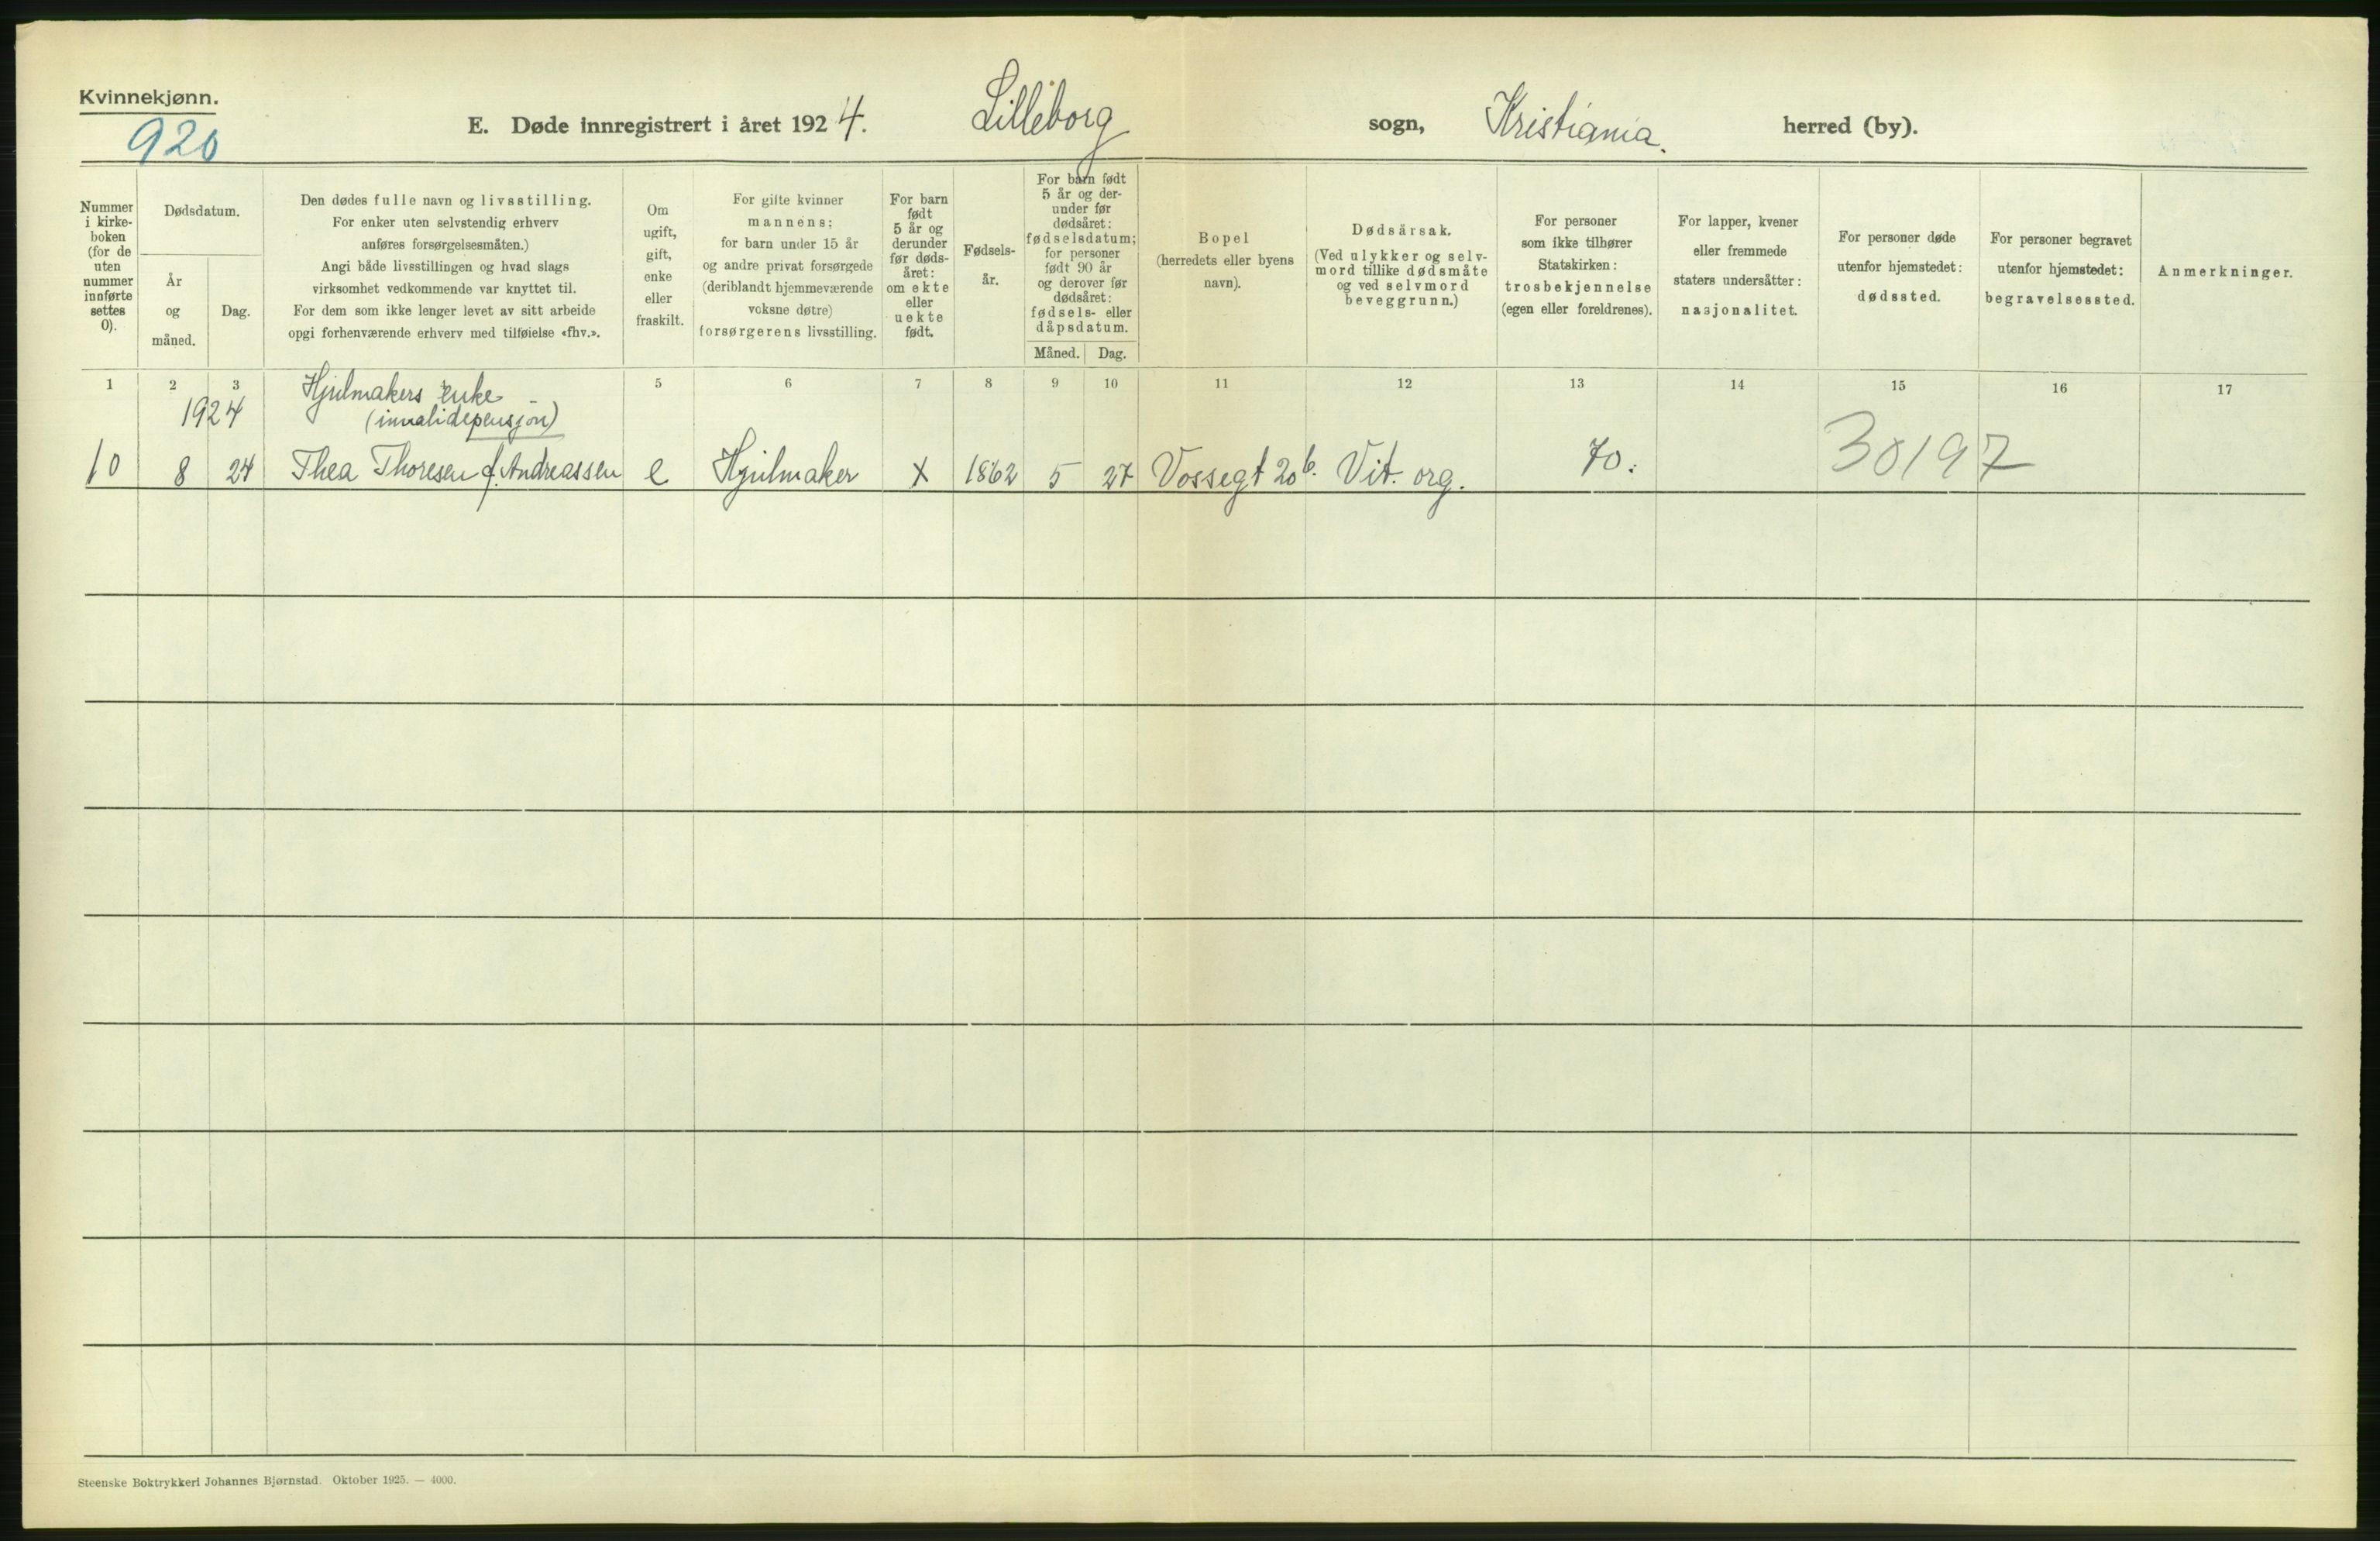 Kvinnekjønn.
920
E. Døde innregistrert i året 1924. Lilleborg sogn, Kristiania. herred (by).
Nummer
i kirke-
boken
(for de
uten
nummer
innførte
settes
0).
Dødsdatum.
År
og
måned.
Dag.
Den dødes fulle navn og livsstilling.
For enker uten selvstendig erhverv
anføres forsørgelsesmåten.)
Angi både livsstillingen og hvad slags
virksomhet vedkommende var knyttet til.
For dem som ikke lenger levet av sitt arbeide
opgi forhenværende erhverv med tilføielse «fhv.».
Om
ugift,
gift,
enke
eller
fraskilt.
For gifte kvinner
mannens;
for barn under 15 år
og andre privat forsørgede
(deriblandt hjemmeværende
voksne døtre)
forsørgerens livsstilling.
For barn
født
5 år og
derunder
før døds-
året:
om ekte
eller
uekte
født.
Fødsels-
år.
For barn født
5 år og der-
under før
dødsåret:
fødselsdatum;
for personer
født 90 år
og derover før
dødsåret:
fødsels- eller
dåpsdatum.
Måned. Dag.
Bopel
(herredets eller byens
navn).
Dødsårsak.
(Ved ulykker og selv-
mord tillike dødsmåte
og ved selvmord
beveggrunn.)
For personer
som ikke tilhører
Statskirken:
trosbekjennelse
(egen eller foreldrenes).
For lapper, kvener
eller fremmede
staters undersåtter:
nasjonalitet.
For personer døde
utenfor hjemstedet:
dødssted.
For personer begravet
utenfor hjemstedet:
begravelsessted.
Anmerkninger.
1 2 3 5 6 7 8 9 10 11 12 13 14 15 16 17
Hjulmakers enke
1924 (invalidepensjon)
10 8 24 Thea Thoresen f. Andreassen e Hjulmaker X 1862 5 27 Vossegt 20 b. Vit. org. 70. 30197
Steenske Boktrykkeri Johannes Bjørnstad. Oktober 1925. — 4000.